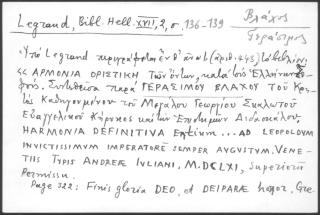 Legrand, Bibl. Hell. XVII, 2, σ. 136-139
Βλάχος
Γεράσιμος
Ὑπὸ Legrand περιγράφεται ἐν (ἀριθ. 445) τὸ βιβλίον:
«ΑΡΜΟΝΙΑ ΟΡΙΣΤΙΚΗ τῶν ὄντων, κατὰ τοὺς Ἑλλήνων
σοφούς, Συντεθεῖσα παρὰ ΓΕΡΑΣΙΜΟΥ ΒΛΑΧΟΥ τοῦ Κρη-
τὸς Καθηγουμένου τοῦ Μεγάλου Γεωργίου Σκαλωτοῦ
Εὐαγγελικοῦ Κήρυκος καὶ τῶν Ἐπιστημῶν Διδασκάλου,
HARMONIA DEFINITIVA Entium... AD LEOPOLDUM
INVICTISSIMUM IMPERATOREM SEMPER AUGUSTUM. VENE-
TIIS TYPIS ANDREÆ IULIANI, M.DCLXI, Superiorum
Permissu.
Page 322: Finis gloria DEO, et DEIPARÆ honor, Gre